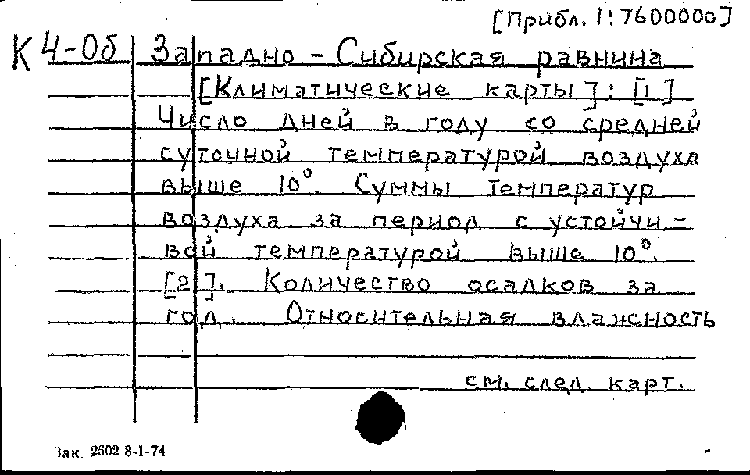 [Прибл. 1:7600000]
К 4-Об Западно-Сибирская равнина
[Климатические карты]: [1]
Число дней в году со средней
суточной температурой воздуха
выше 10°. Суммы температур
воздуха за период с устойчи-
вой температурой выше 10°.
[2]. Количество осадков за
год. Относительная влажность
см. след. карт.
Зак. 2602 8-1-74